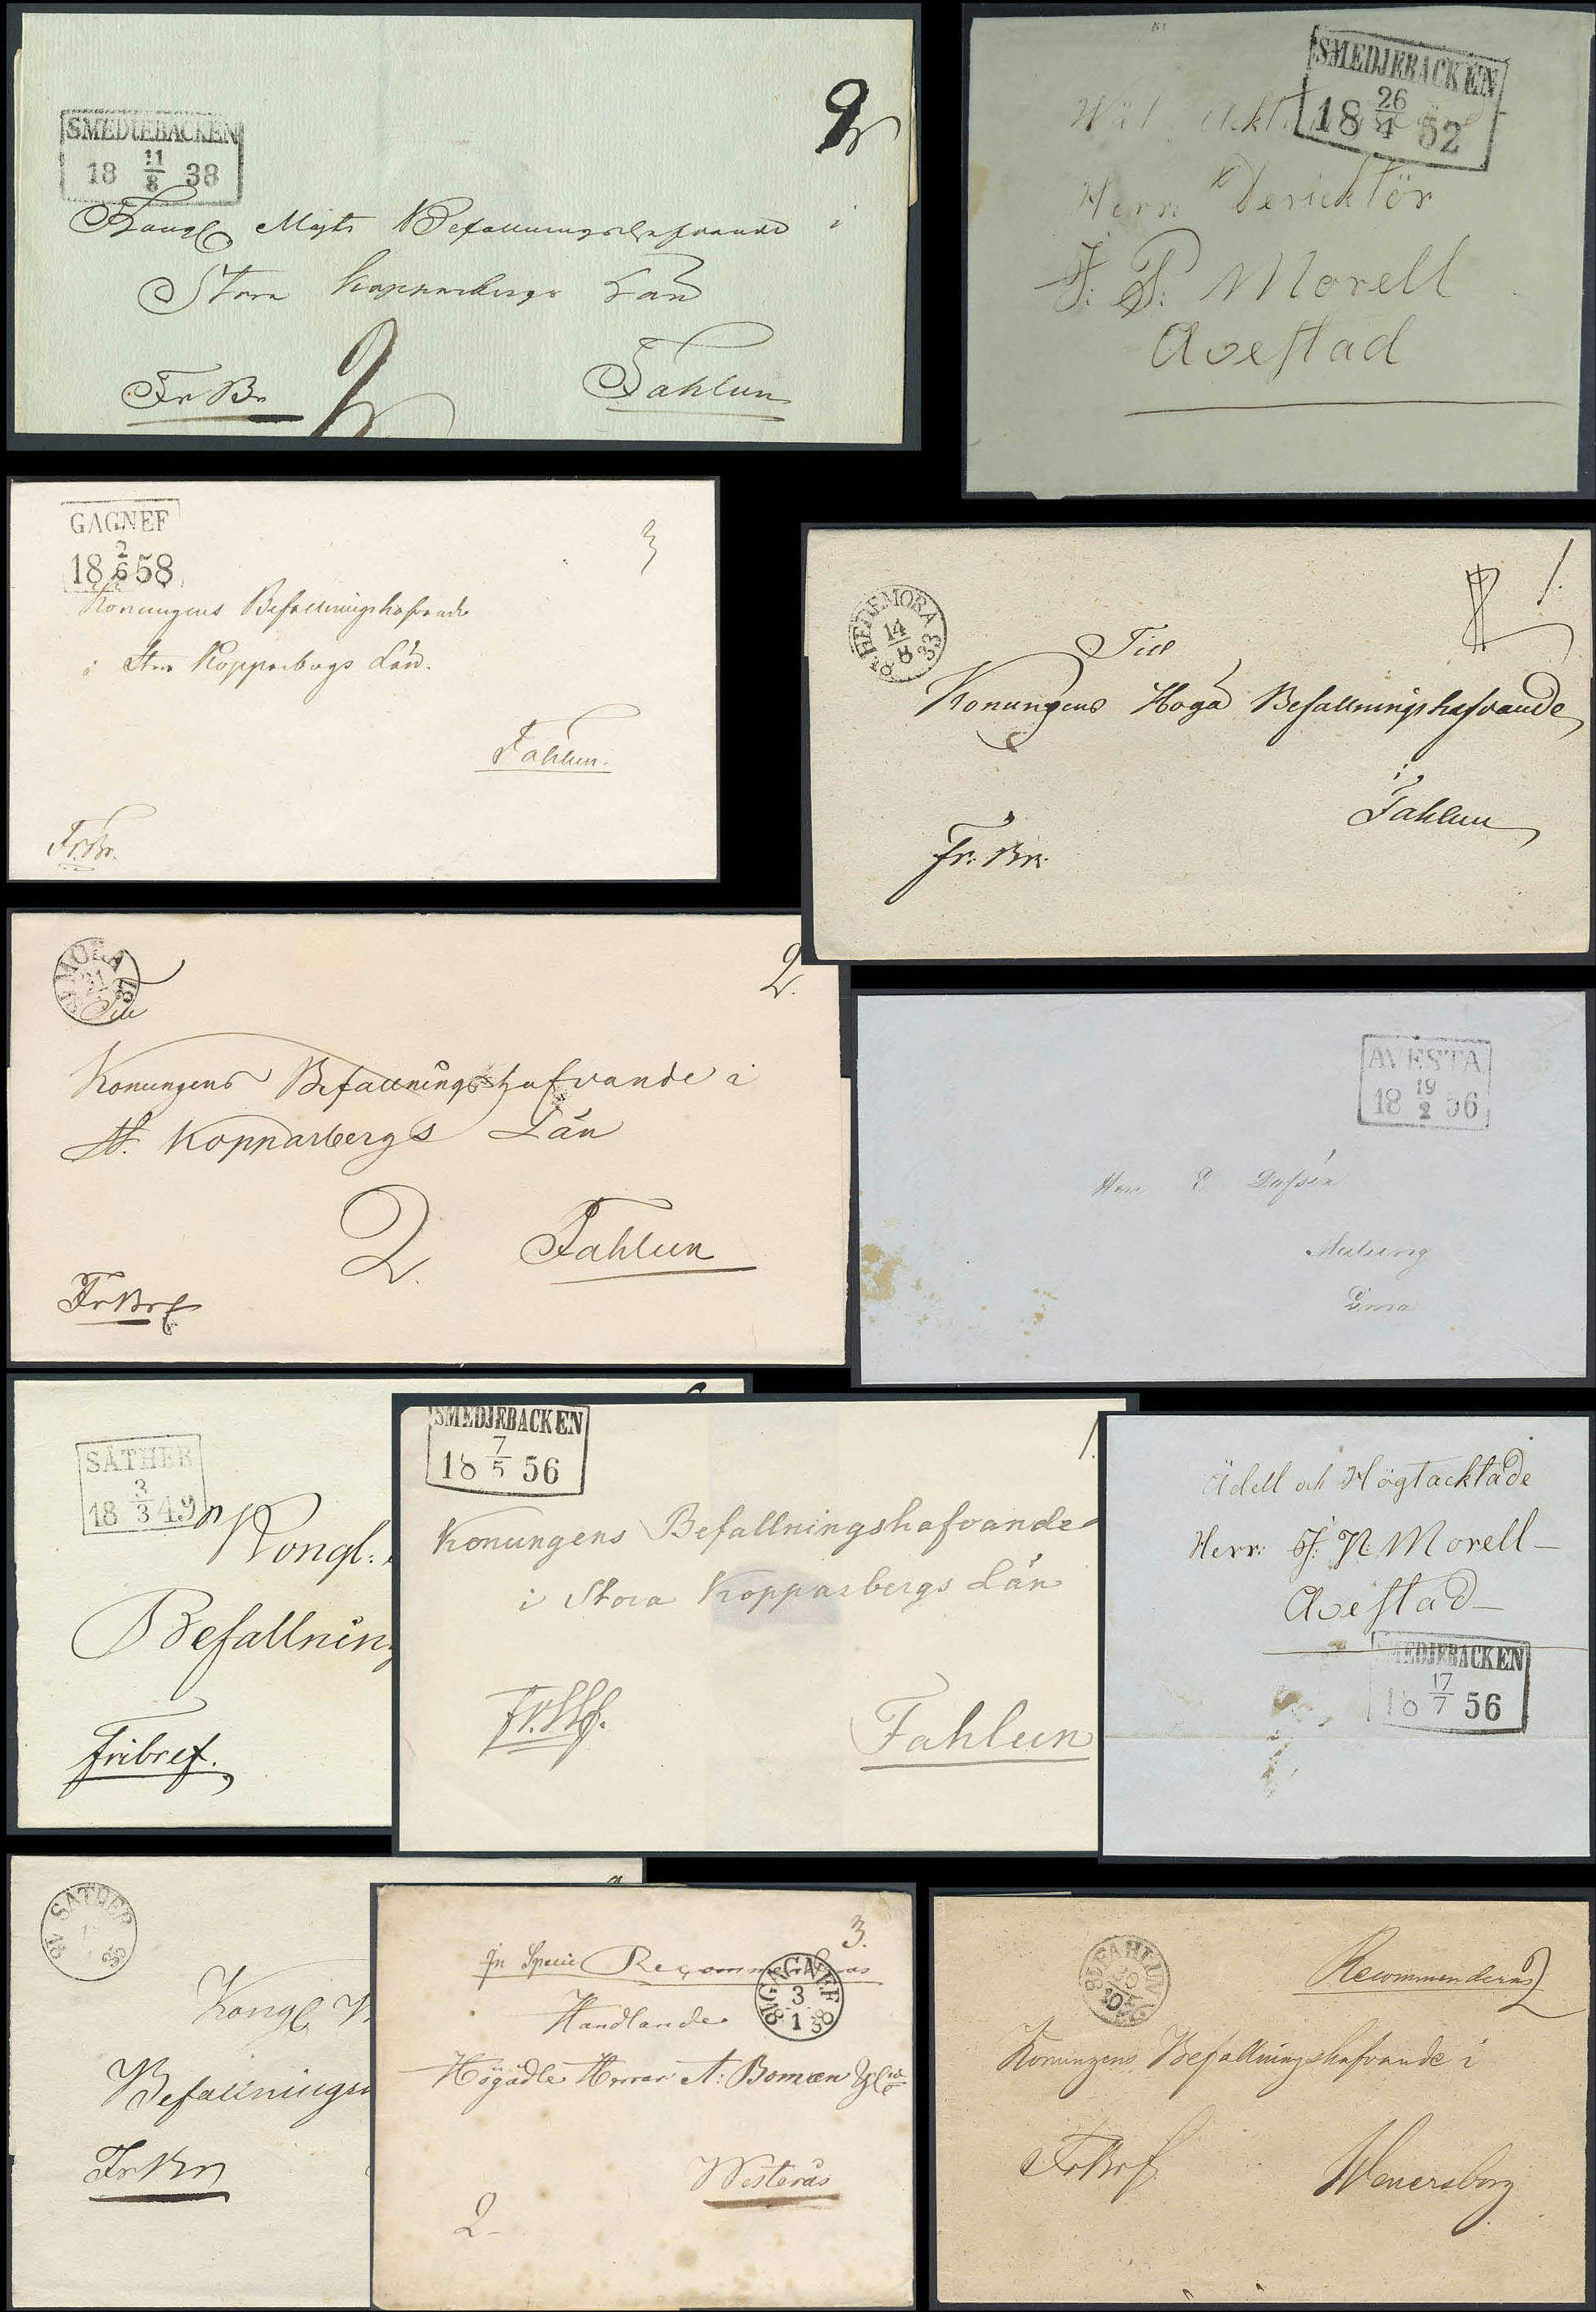 SMEDIEBACKEN
18 11/8 38
Kongl Majts Befallningshafvande i
Stora Kopparbergs Län
Fr Br 2 Fahlun
SMEDJEBACKEN
18 26/4 52
Herr
J: P: Morell
Avestad
GAGNEF
18 2/6 58
3
Konungens Befallningshafvande
i Stora Kopparbergs Län.
Fahlun.
Fr.Br.
HEDEMORA
18 14/8 33
1.
Till
Konungens Höga Befallningshafvande
i
Fahlun
Fr: Br:
2.
Till
Konungens Befallningshafvande i
St. Kopparbergs Län
2. Fahlun
FrBref
AVESTA
18 19/2 56
Herr
Malung
SÄTHER
18 3/3 49
Kongl:
Befallnin
Fribref.
SMEDJEBACKEN
18 7/5 56
1.
Konungens Befallningshafvande
i Stora Kopparbergs Län
Fahlun
Ädell och Högtacktade
Herr: J: P: Morell
Avestad
SMEDJEBACKEN
18 17/7 56
SÄTHER
18
Kongl
Befallnings
FrBr
3.
In Specie Recommenderas
GAGNEF
18 3/1
Handlande
Högädle Herrar A: Boman
Westerås
2
FAHLUN
Recommenderas
2
Konungens Befallningshafvande i
FrBref
Wenersborg